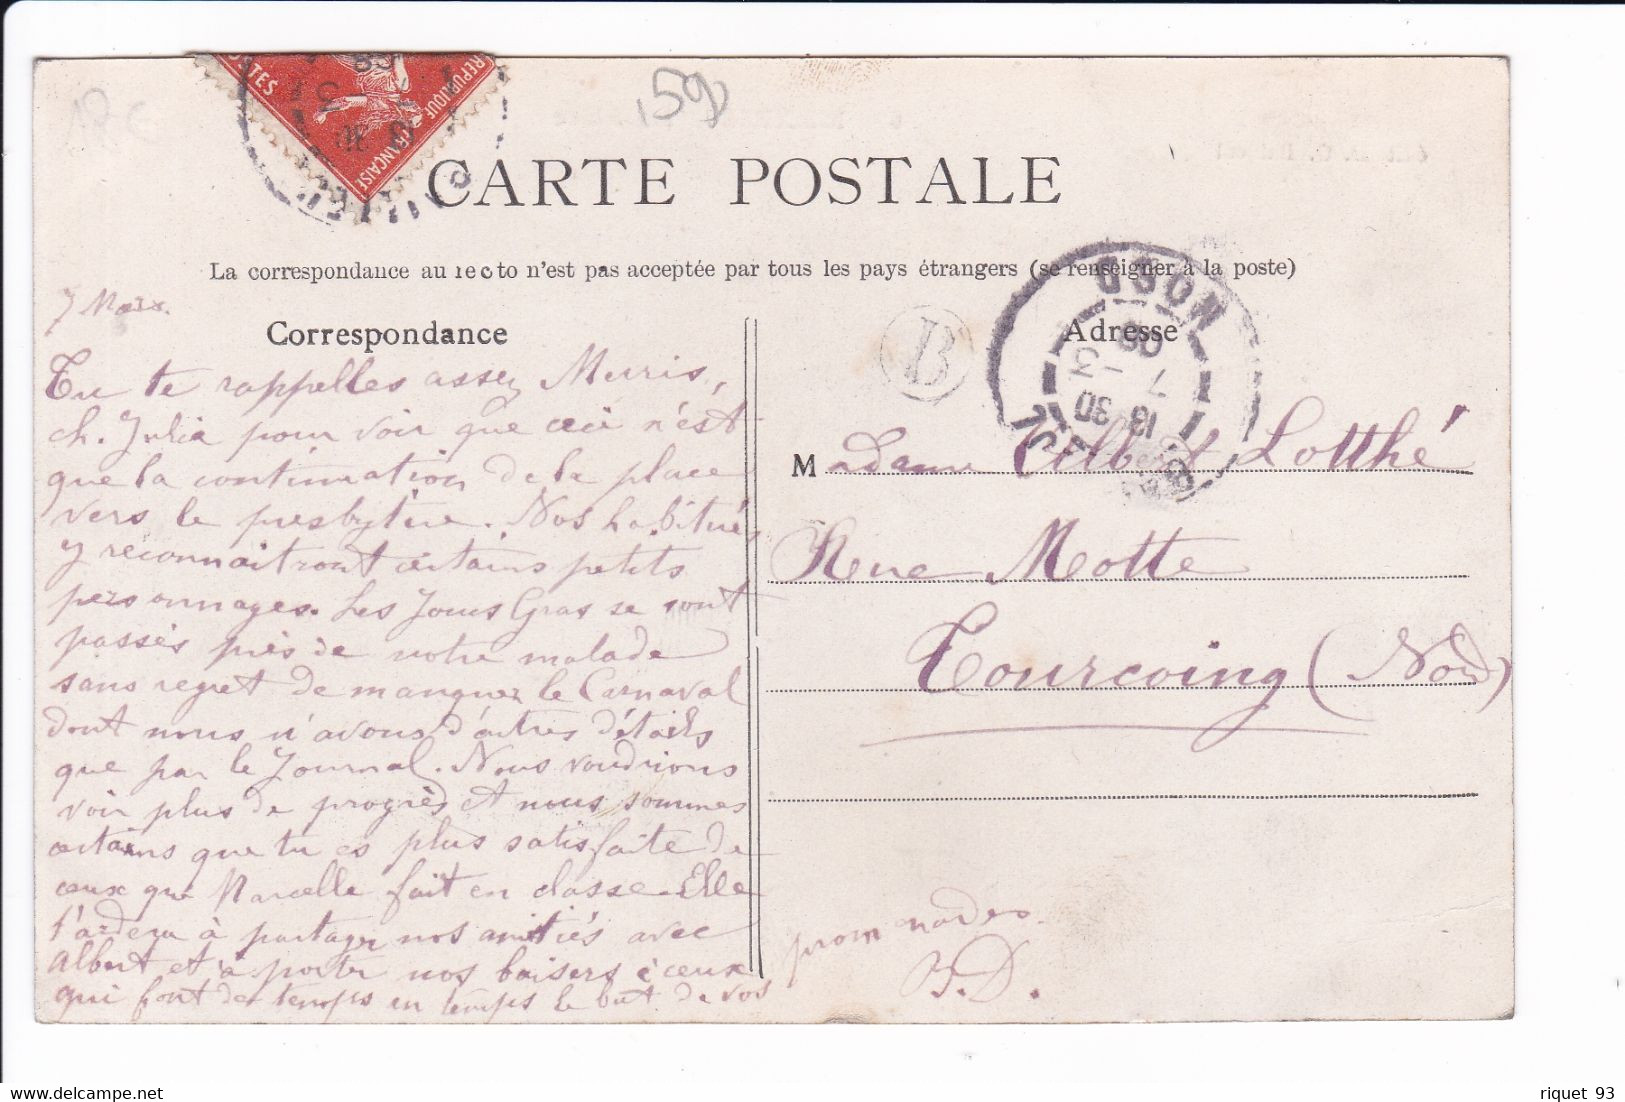 159
RÉPUBLIQUE FRANÇAISE
POSTES
CARTE POSTALE
La correspondance au recto n'est pas acceptée par tous les pays étrangers (se renseigner à la poste)
7 Mars.
Correspondance
Adresse
B
13 30
7 - 3
08
Tu te rappelles assez Meuris,
ch. Julia pour voir que ceci n'est
que la continuation de la place
vers le presbytère. Nos habitués
y reconnaitront certains petits
personnages. Les Jours Gras se sont
passés près de notre malade
sans regret de manquer le Carnaval
dont nous n'avons d'autres détails
que par le Journal. Nous voudrions
voir plus de progrès et nous sommes
certains que tu es plus satisfaite de
ceux que Marcelle fait en classe. Elle
t'aidera à partager nos amitiés avec
Albert et à porter nos baisers à ceux
qui font de temps en temps le but de vos
promenades.
J.D.
Madame Albert Lotthé
Rue Motte
Tourcoing (Nord)
riquet 93